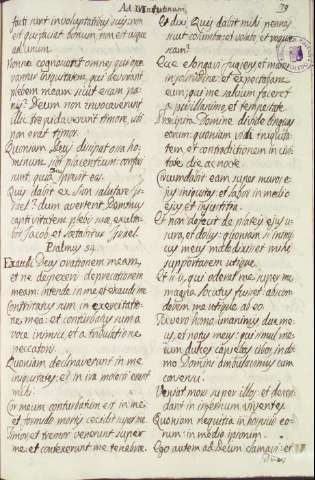 Ad Matutinum.
39
facti sunt in voluptatibus suis: non
est qui faciat bonum non est usque
ad unum.
Nonne cognoscent omnes qui ope
rantur iniquitatem, qui devorant
plebem meam sicut escam pa
nis? Deum non invocaverunt
illic trepidaverunt timore, ubi
non erat timor.
Quoniam Deus dissipat ossa ho
minum qui placent: confusi
sunt, quia sprevit eos.
Quis dabit ex Sion salutare Is
rael? dum avertent Dominus
captivitatem plebis suae, exulta
bit Jacob, et laetabitur Israel.
Psalmus 54.
Exaudi Deus orationem meam,
et ne despexeris deprecationem
meam: intende in me et exaudi me
Contristatus sum in exercitatio
ne mea: et conturbatus sum a
voce inimici, et a tribulatione
peccatoris.
Quoniam declinaverunt in me
iniquitates: et in ira molesti erant
mihi.
Cor meum conturbatum est in me:
et formido mortis cecidit super me
Timor et tremor venerunt super
me: et contexerunt me tenebrae.
Et dixi Quis dabit mihi pennas
sicut columbae: et volabo, et requies
cam?
Ecce elongavi fugiens: et mansi
in solitudine.
Expectabam
eum, qui me salvum fecit
a pusillanimi, et tempestate
Praecipita Domine divide linguas
eorum: quoniam vidi iniquita
tem et contradictionem in civi
tate.
die, ac nocte
Circumdabit eam super muros e
jus iniquitas: et labor in medio
ejus et injustitia.
Et non defecit de plateis ejus u
sura, et dolus:
quoniam si inimi
cus meus maledixisset mihi
supportavissem utique.
Et si is, qui oderat me super me
magna locutus fuisset: abscon
dissem me
utique ab eo.
Tu vero homo unanimis: dux me
us, et notus meus: qui simul me
cum dulces capiebas cibos in do
mo Domini ambulavimus cum
consensu.
Veniat mors super illos: et descen
dant in infernum viventes.
Quoniam nequitia in
eo
rum: in medio ipsorum.
Ego autem ad Deum clamavi: et